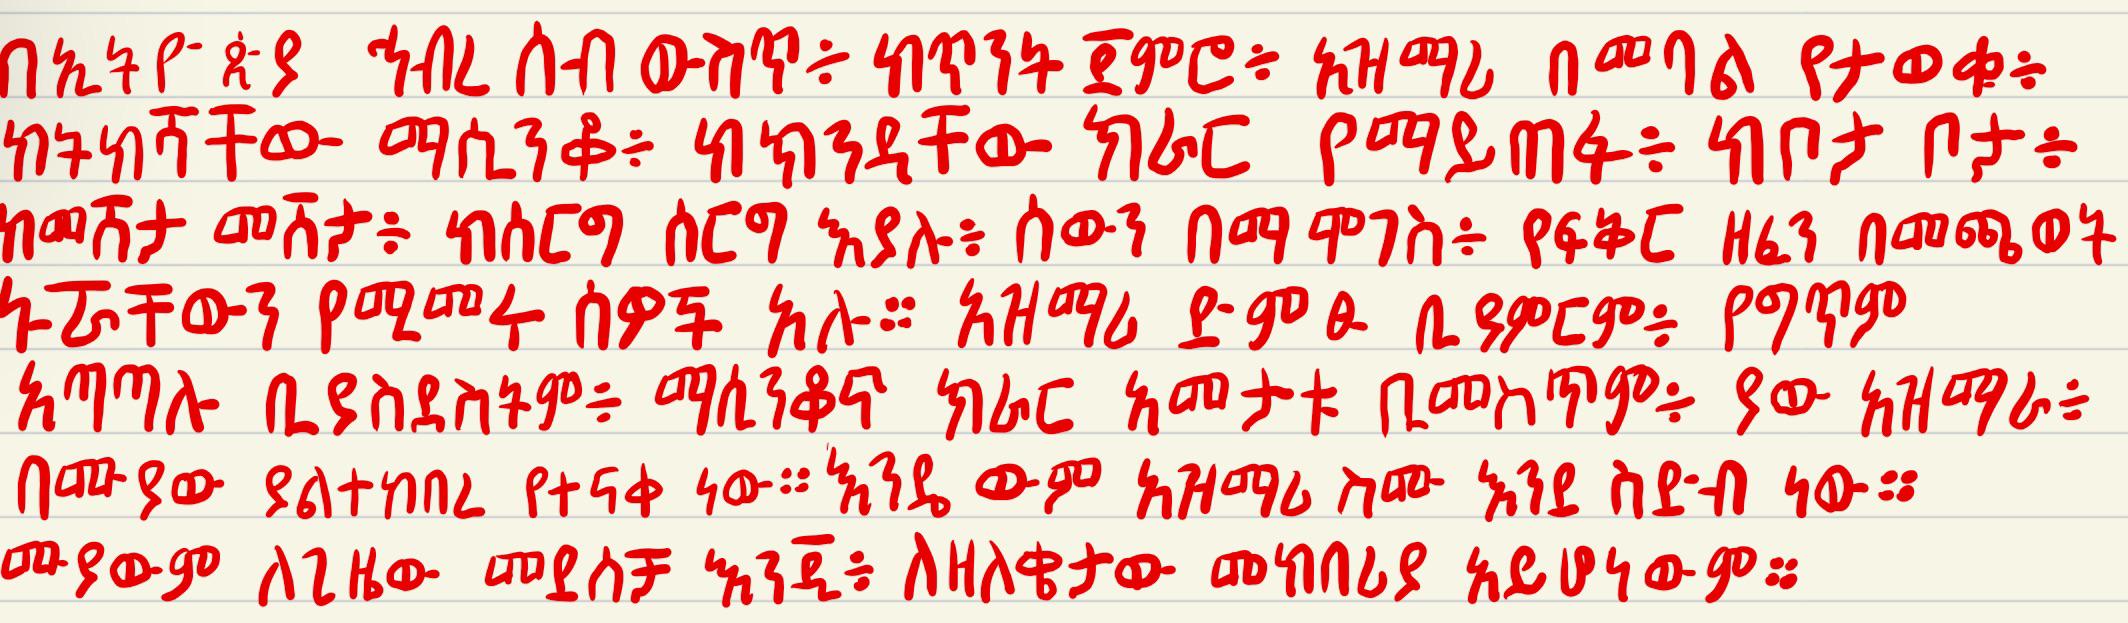 በኢትዮጵያ ኅብረ ሰብ ውስጥ፥ ከጥንት ጀምሮ፥ አዝማሪ በመባል የታወቁ፥
ከትከሻቸው ማሲንቆ፥ ከክንዳቸው ክራር የማይጠፋ፥ ከቦታ ቦታ፥
ከመሸታ መሸታ፥ ከሰርግ ሰርግ እያሉ፥ ሰውን በማሞገስ፥ የፍቅር ዘፈን በመጫወት
ኑሯቸውን የሚመሩ ሰዎች አሉ። አዝማሪ ድምፁ ቢያምርም፥ የግጥም
አጣጣሉ ቢያስደስትም፥ ማሲንቆና ክራር አመታቱ ቢመስጥም፥ ያው አዝማሪ፥
በሙያው ያልተከበረ የተናቀ ነው። እንዴውም አዝማሪ ስሙ እንደ ስድብ ነው።
ሙያውም ለጊዜው መደሰቻ እንጂ፥ ለዘለቄታው መከበሪያ አይሆነውም።